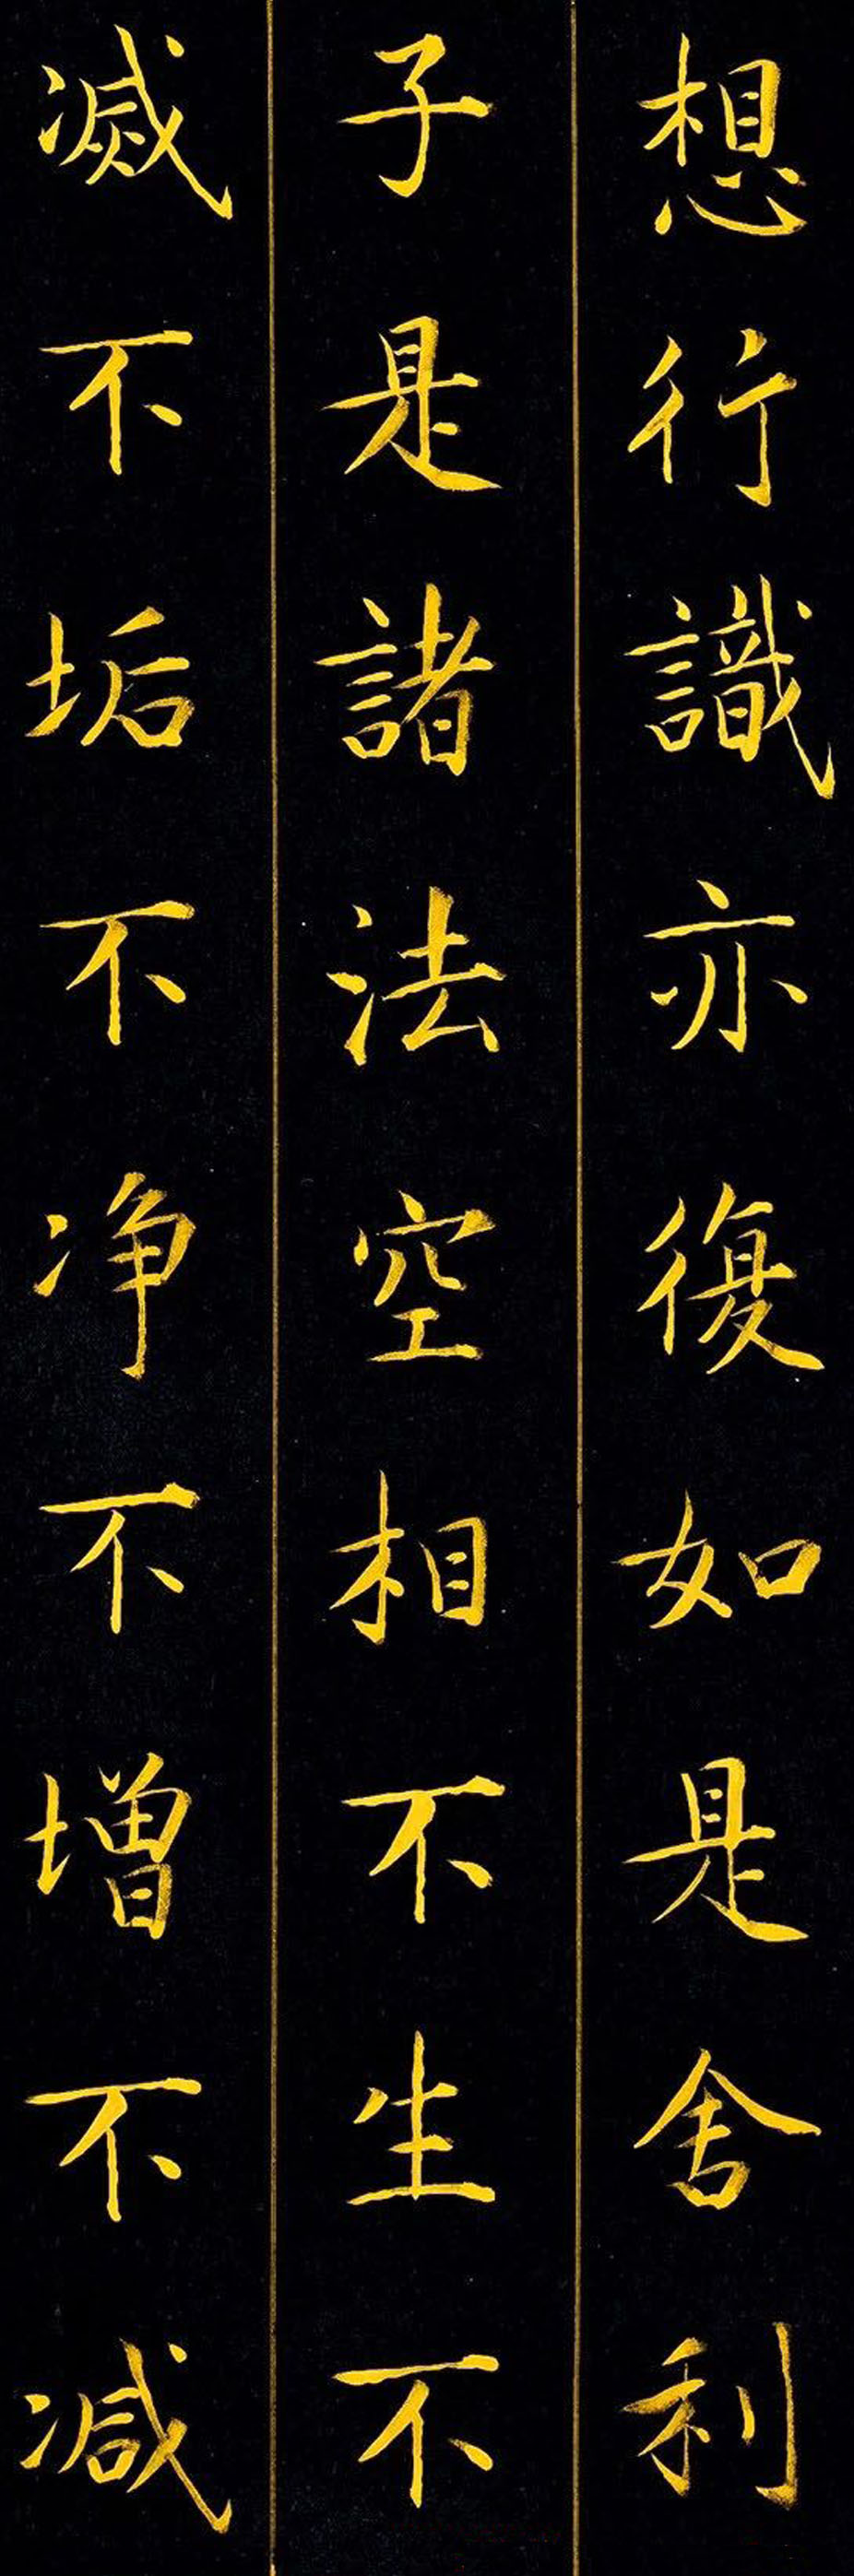 想行識亦復如是舍利
子是諸法空相不生不
滅不垢不净不增不减